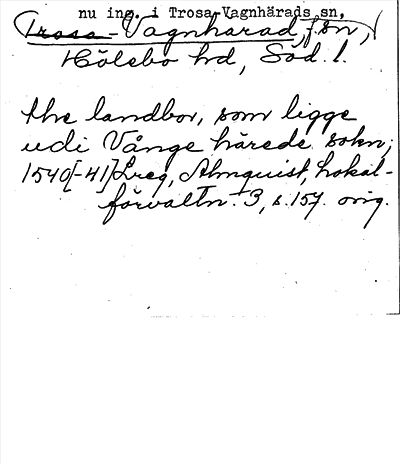 nu ing. i Trosa-Vagnhärads sn,
Trosa-Vagnhärad, sn,
Hölebo hd, Söd. l.
the landbor, som ligge
udi Vånge härede sokn;
1540[-41] Lreg, Almquist, Lokal-
förvaltn. 3, s. 157. orig.